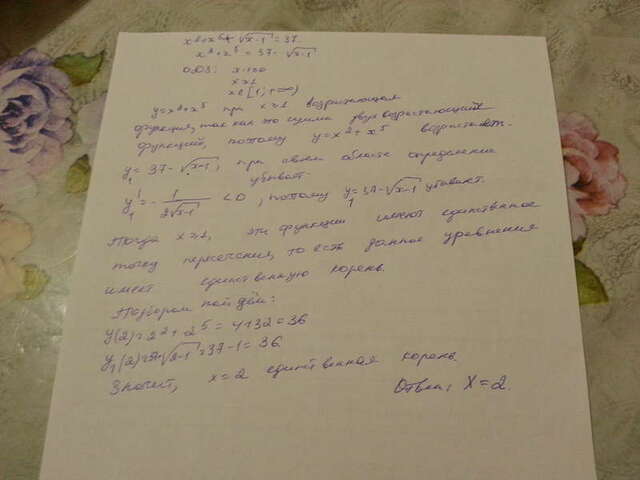 x²+x⁵+√x-1 = 37
x²+x⁵ = 37-√x-1
О.О.З: x-1≥0
x≥1
x∈[1; +∞)
y=x²+x⁵ при x≥1 возрастающая
функция, так как это сумма двух возрастающих
функций, поэтому y=x²+x⁵ возрастает.
y₁ = 37-√x-1, при своей области определения
убывает.
y₁' = - 1/2√x-1 <0, поэтому y₁=37-√x-1 убывает.
Тогда x≥1, эти функции имеют единственное
точку пересечения, то есть данное уравнения
имеет единственную корень.
Подбором найдём:
y(2)=2²+2⁵=4+32=36
y₁(2)=37-√2-1=37-1=36
Значит, x=2 единственная корень.
Ответ: x=2.